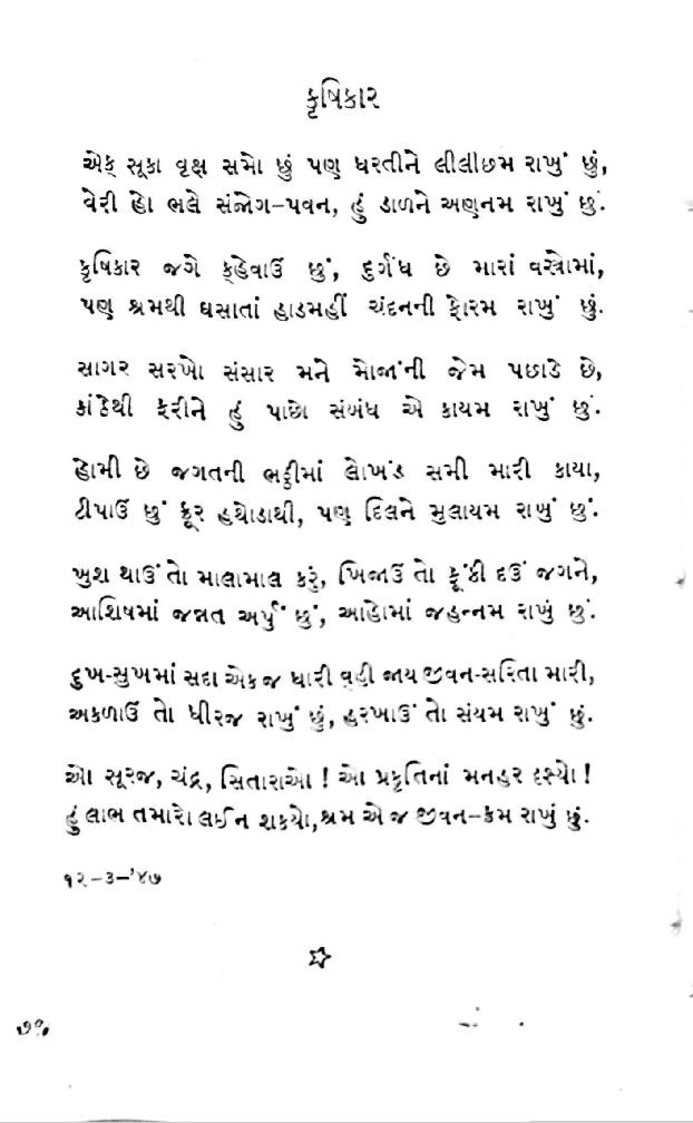 કૃષિકાર
એક સૂકા વૃક્ષ સમો છું પણ ધરતીને લીલીછમ રાખું છું,
વેરી હો ભલે સંજોગ-પવન, હું ડાળને અણનમ રાખું છું.
કૃષિકાર જગે ક્હેવાઉં છું, દુર્ગંધ છે મારાં વસ્ત્રોમાં,
પણ શ્રમથી ઘસાતાં હાડમહીં ચંદનની ફોરમ રાખું છું.
સાગર સરખો સંસાર મને મોજાંની જેમ પછાડે છે,
કાંઠેથી ફરીને હું પાછો સંબંધ એ કાયમ રાખું છું.
હોમી છે જગતની ભઠ્ઠીમાં લોખંડ સમી મારી કાયા,
ટીપાઉં છું ક્રૂર હથોડાથી, પણ દિલને મુલાયમ રાખું છું.
ખુશ થાઉં તો માલામાલ કરું, ખિજાઉં તો ફૂંકી દઉં જગને,
આશિષમાં જન્નત અર્પું છું, આહોમાં જહન્નમ રાખું છું.
દુખ-સુખમાં સદા એક જ ધારી વ્હી જાય જીવન-સરિતા મારી,
અકળાઉં તો ધીરજ રાખું છું, હરખાઉં તો સંયમ રાખું છું.
ઓ સૂરજ, ચંદ્ર, સિતારાઓ ! ઓ પ્રકૃતિનાં મનહર દૃશ્યો !
હું લાભ તમારો લઈ ન શકયો, શ્રમ એ જ જીવન-ક્રમ રાખું છું.
૧૨-૩-'૪૭